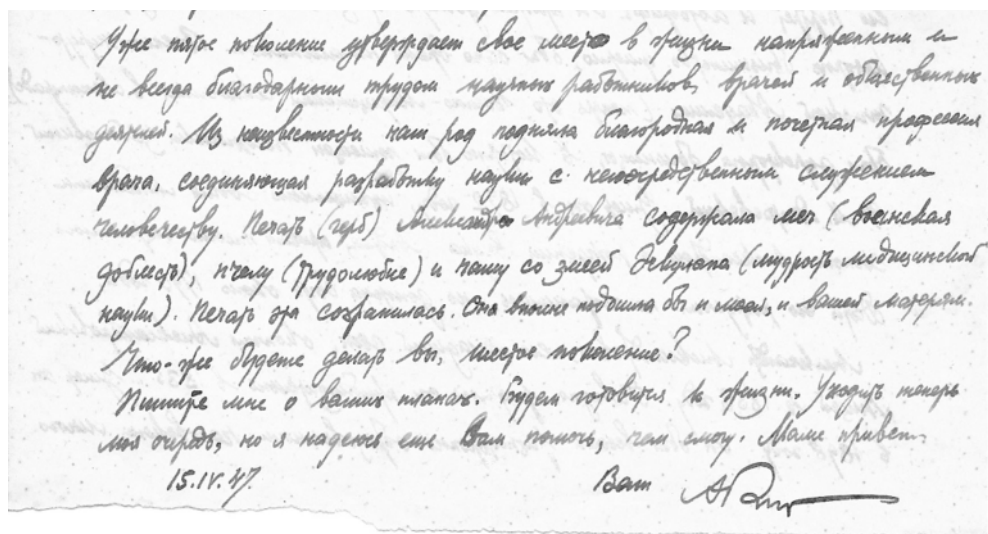 Уже пятое поколение утверждает свое место в жизни напряженным и
не всегда благодарным трудом научных работников, врачей и общественных
деятелей. Из неизвестности наш род подняла благородная и почетная профессия
врача, соединяющая разработку науки с непосредственным служением
человечеству. Печать (герб) Александра Андреевича содержала меч (воинская
доблесть), пчелу (трудолюбие) и чашу со змеей Эскулапа (мудрость медицинской
науки). Печать эта сохранилась. Она вполне подошла бы и моей, и вашей матерям.
Что-же будете делать вы, шестое поколение?
Пишите мне о ваших планах. Будем готовится к жизни. Уходить теперь
моя очередь, но я надеюсь еще Вам помочь, чем смогу. Маме привет.
15.IV.47. Ваш